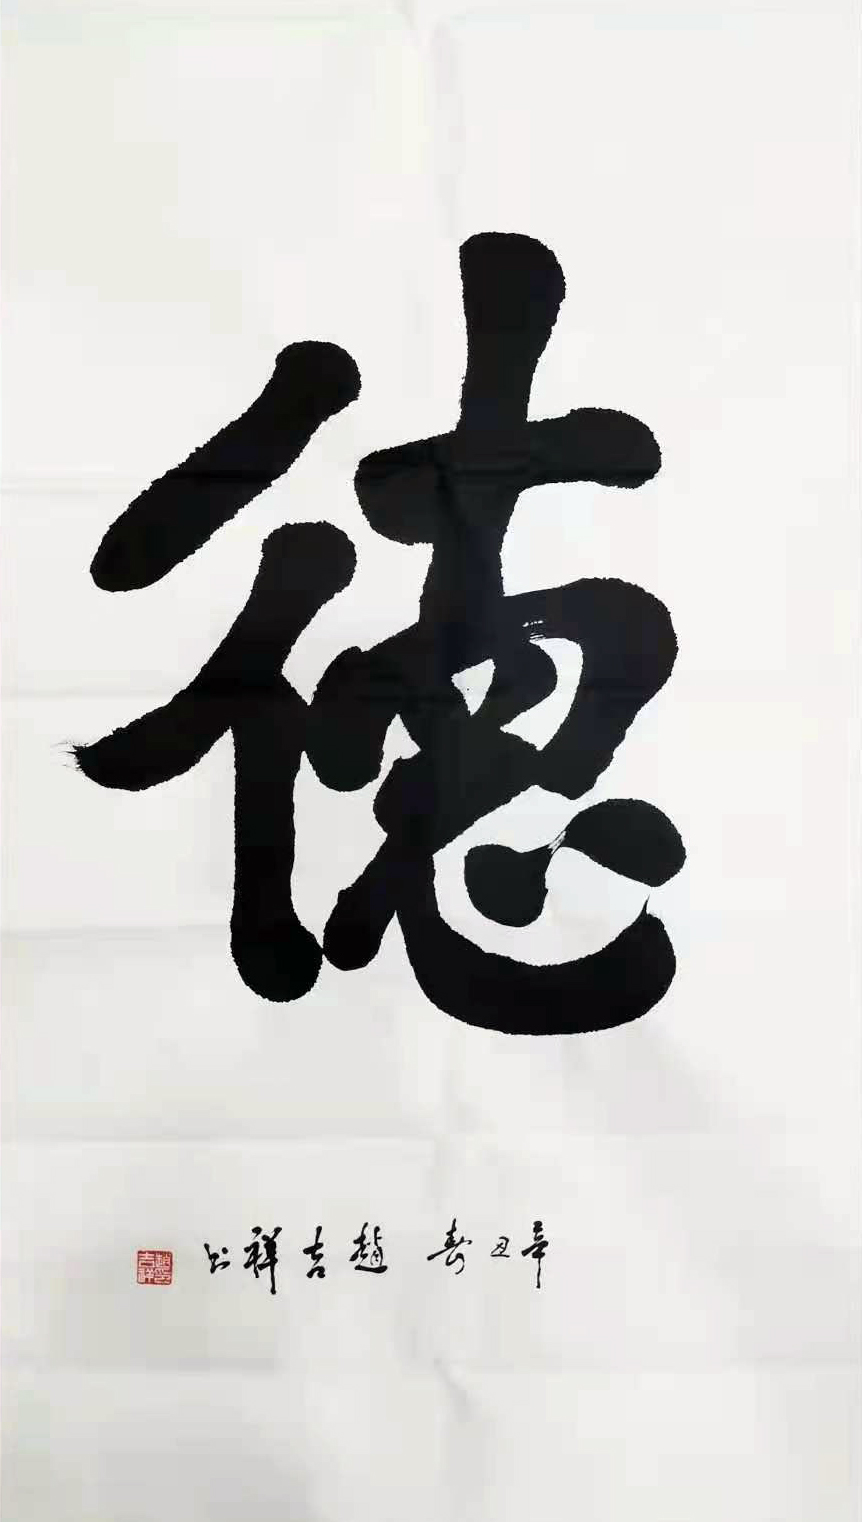 德
辛丑春 趙吉祥书
趙印吉祥